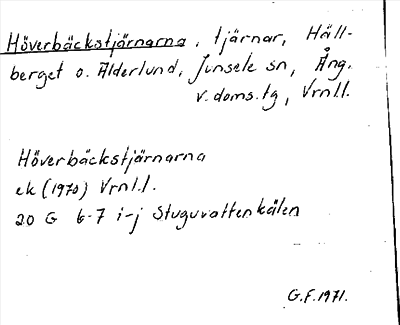 Höverbäckstjärnarna, tjärnar, Häll-
berget o. Ålderlund, Junsele sn, Ång.
v. doms.tg, Vrnll.
Höverbäckstjärnarna
ek (1970) Vrnl.l.
20 G 6-7 i-j Stuguvattenkälen
G.F. 1971.